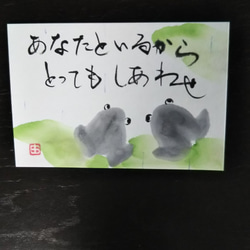 あなたといるから
とってもしあわせ